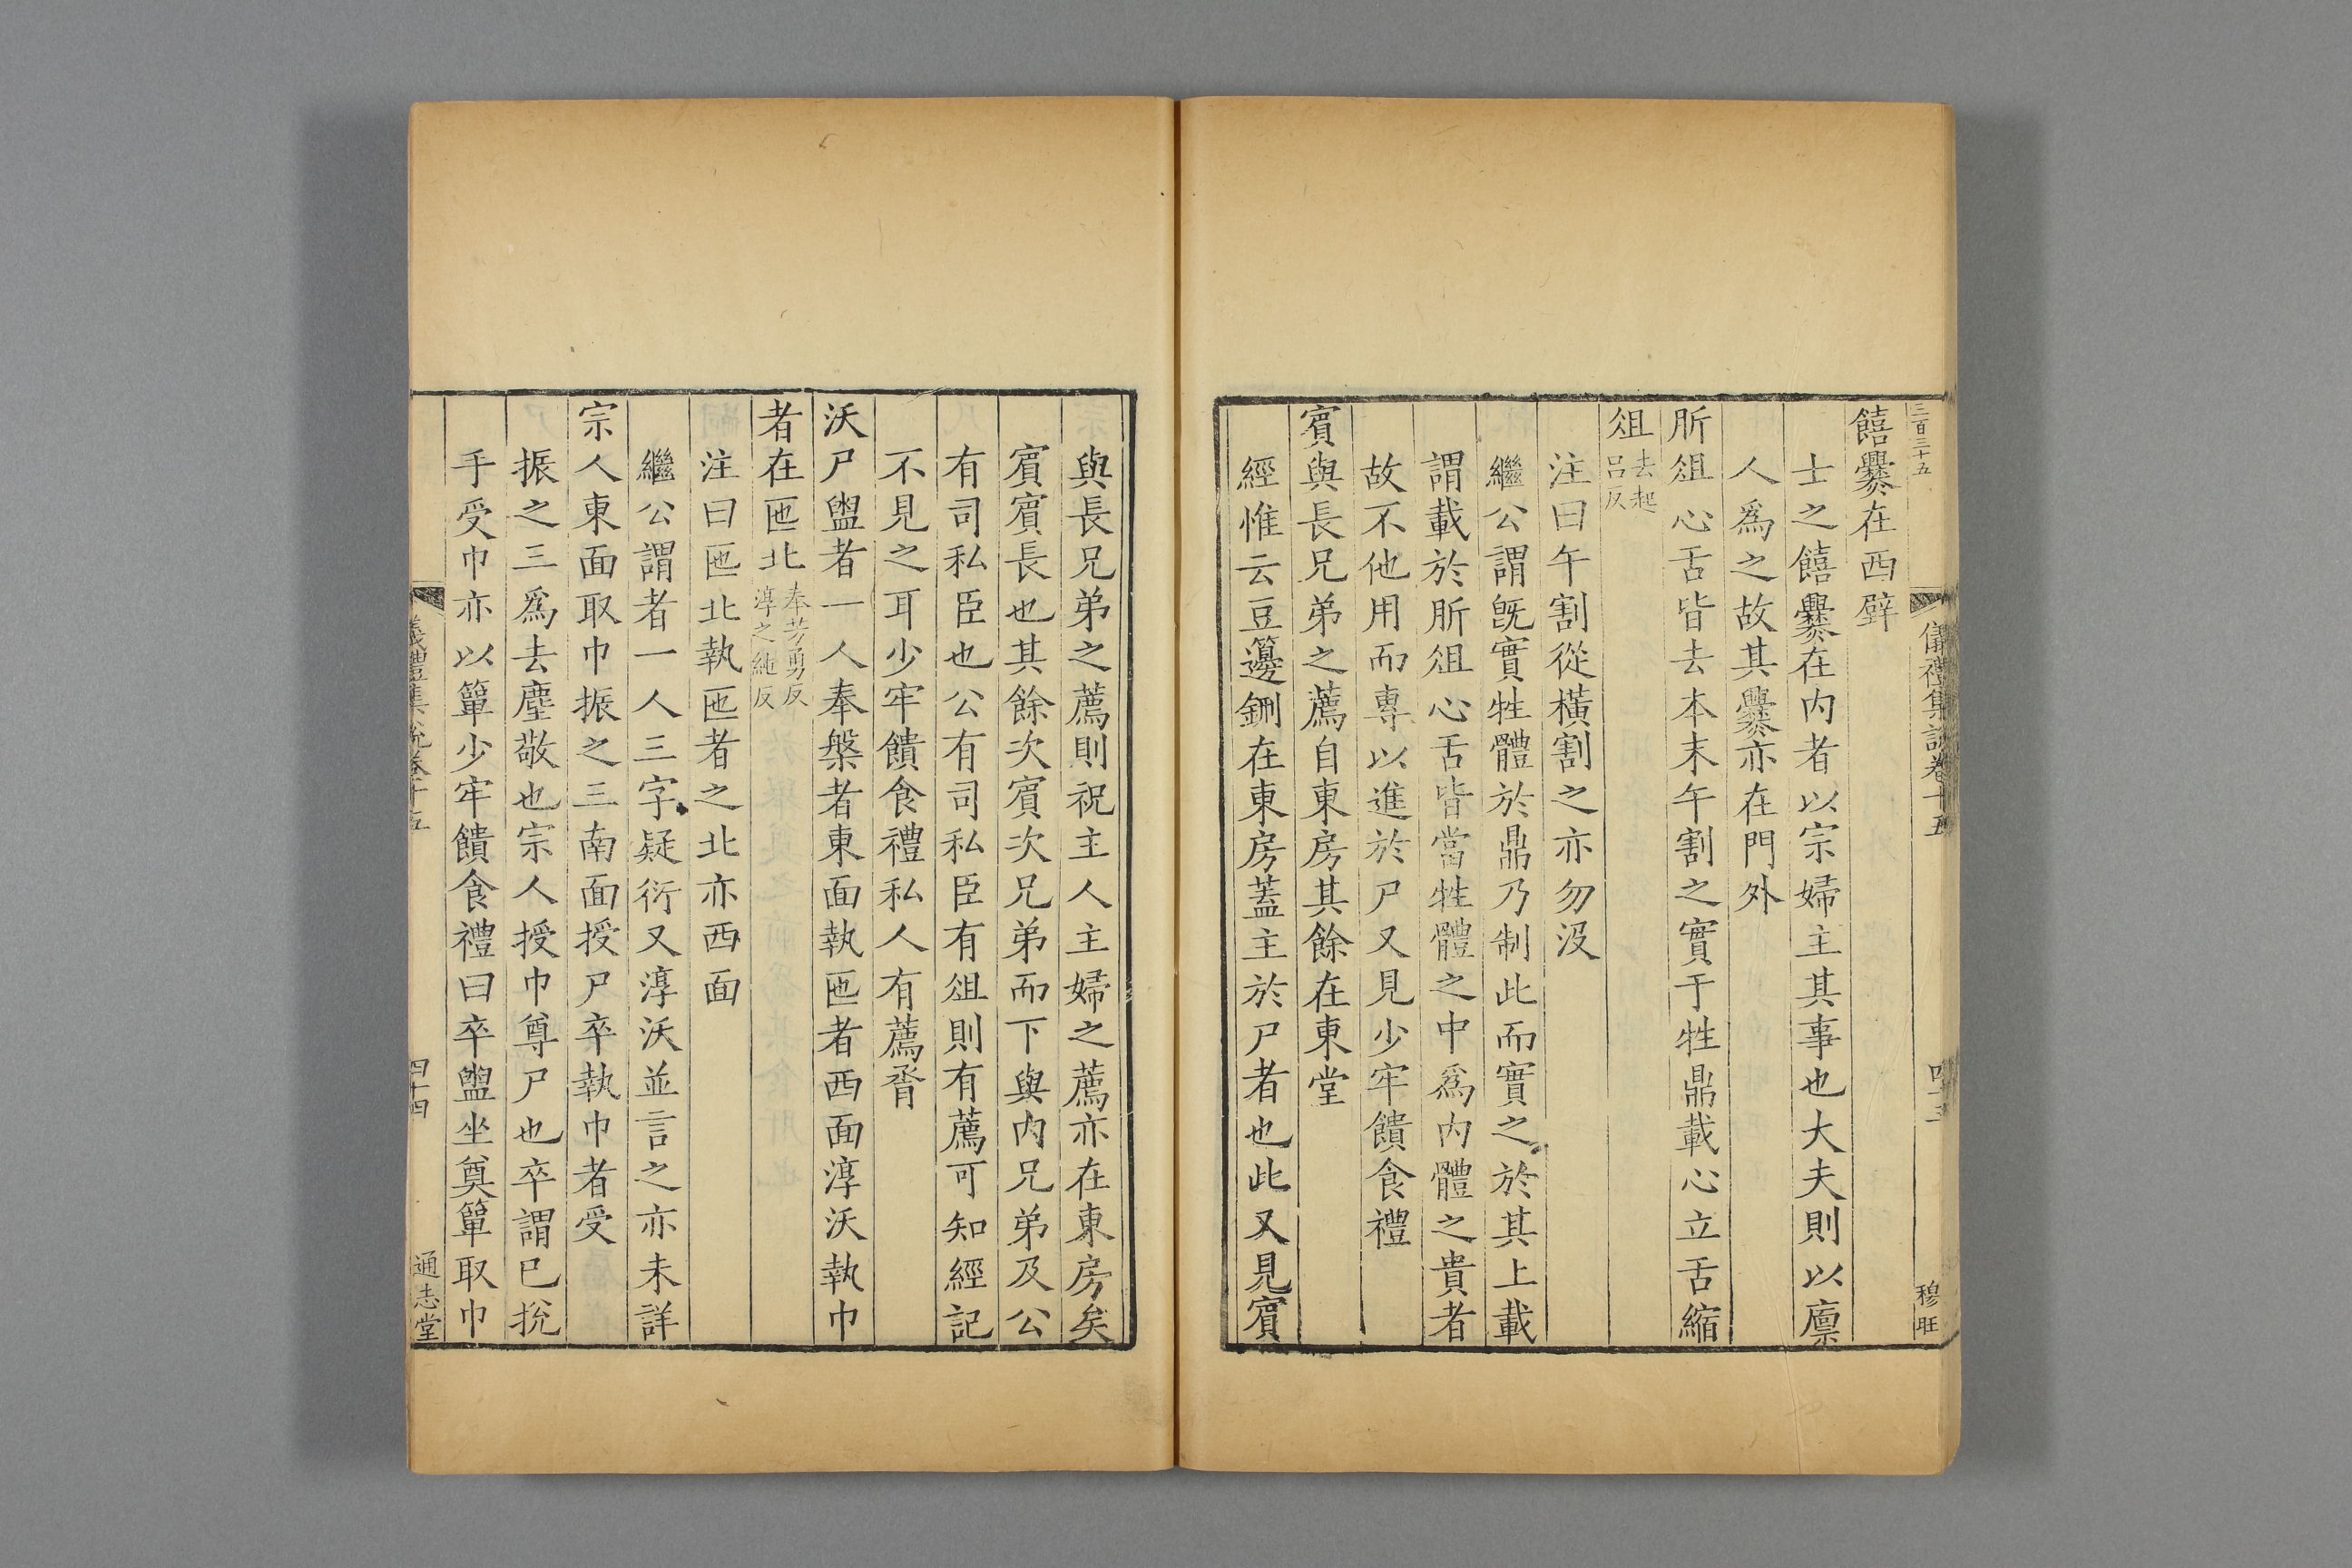 三百三十五
儀禮集說卷十五
穆旺
饎爨在西壁
士之饎爨在内者以宗婦主其事也大夫則以廪
人爲之故其爨亦在門外
肵俎心舌皆去本末午割之實于牲鼎載心立舌縮
俎去起呂反
注曰午割從橫割之亦勿没
繼公謂旣實牲體於鼎乃制此而實之於其上載
謂載於肵俎心舌皆當牲體之中爲内體之貴者
故不他用而專以進於尸又見少牢饋食禮
賔與長兄弟之薦自東房其餘在東堂
經惟云豆籩鉶在東房蓋主於尸者也此又見賔
與長兄弟之薦則祝主人主婦之薦亦在東房矣
賔賔長也其餘次賔次兄弟而下與内兄弟及公
有司私臣也公有司私臣有俎則有薦可知經記
不見之耳少牢饋食禮私人有薦脀
沃尸盥者一人奉槃者東面執匜者西面淳沃執巾
者在匜北奉芳勇反淳之純反
注曰匜北執匜者之北亦西面
繼公謂者一人三字疑衍又淳沃並言之亦未詳
宗人東面取巾振之三南面授尸卒執巾者受
振之三爲去塵敬也宗人授巾尊尸也卒謂已挩
手受巾亦以簞少牢饋食禮曰卒盥坐奠簞取巾
儀禮集說卷十五
四十四
通志堂